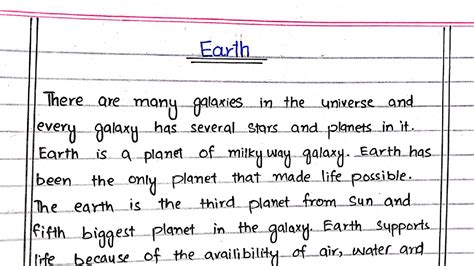 Earth
There are many galaxies in the universe and
every galaxy has several stars and planets in it.
Earth is a planet of milky way galaxy. Earth has
been the only planet that made life possible.
The earth is the third planet from sun and
fifth biggest planet in the galaxy. Earth supports
life because of the availibility of air, water and